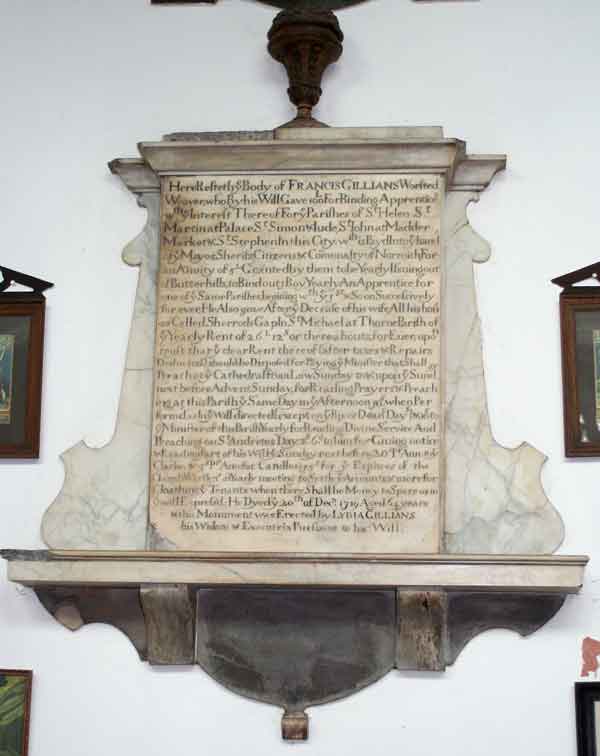 Here Resteth yᵉ Body of FRANCIS GILLIANS Worsted
Weaver, who By his Will Gave 150ᴸ For Binding Apprentices
wᵗʰ yᵉ Interest Thereof For yᵉ Parishes of Sᵗ Helen Sᵗ
Martin at Palace Sᵗ Simon & Jude Sᵗ John at Madder
Market & Sᵗ Stephen In this City wᶜʰ is Payd Into yᵉ hand
of yᵉ Mayor Sherifs Citizens & Comunalty of Norwich For
an Anuity of Granted by them to be Yearly Issuing out
of Butter hills to Bind out 1 Boy Yearly An Apprentice for
one of yᵉ Same Parishes begining wᵗʰ yᵉ 1ˢᵗ & So on Successively
for ever He Also gave After yᵉ Decease of his wife All his hous
es Called Sherrods Gap In Sᵗ Michael at Thorne Parish of
yᵉ Yearly Rent of 26ᴸ 12ˢ or there abouts for Ever, upon
trust that yᵉ clear Rent thereof (after taxes & Repairs
Deducted) should be Disposed for Paying yᵉ Minister that Shall
Preach at yᵉ Cathedral on Low Sunday & upon yᵉ Sund
next before Advent Sunday, for Reading Prayers & Preach
ing at this Parish yᵉ Same Day in yᵉ Afternoon as when Per
formed as by his Will directed except on yᵉ
yᵉ Minister of this Parish Yearly for Reading Divine Service And
Preaching on Sᵗ Andrews Day 2ˢ 6ᵈ to him for Giving notice
& Reading part of his Will yᵉ Sunday next before 20ˢ Pʳ Ann to yᵉ
Clarke & 5ˢ Pʳ Ann for Candles for yᵉ Expence of the
Yearly meeting to Settle yᵉ Accounts more for
Cloathing yᵉ Tenants when there Shall be Money to Spare as in
His Will Exprest. He Dyed yᵉ 20ᵗʰ of Decʳ 1719 Aged 64 years
This Monument was Erected by LYDIA GILLIANS
his Widow & Executrix Pursuant to his Will